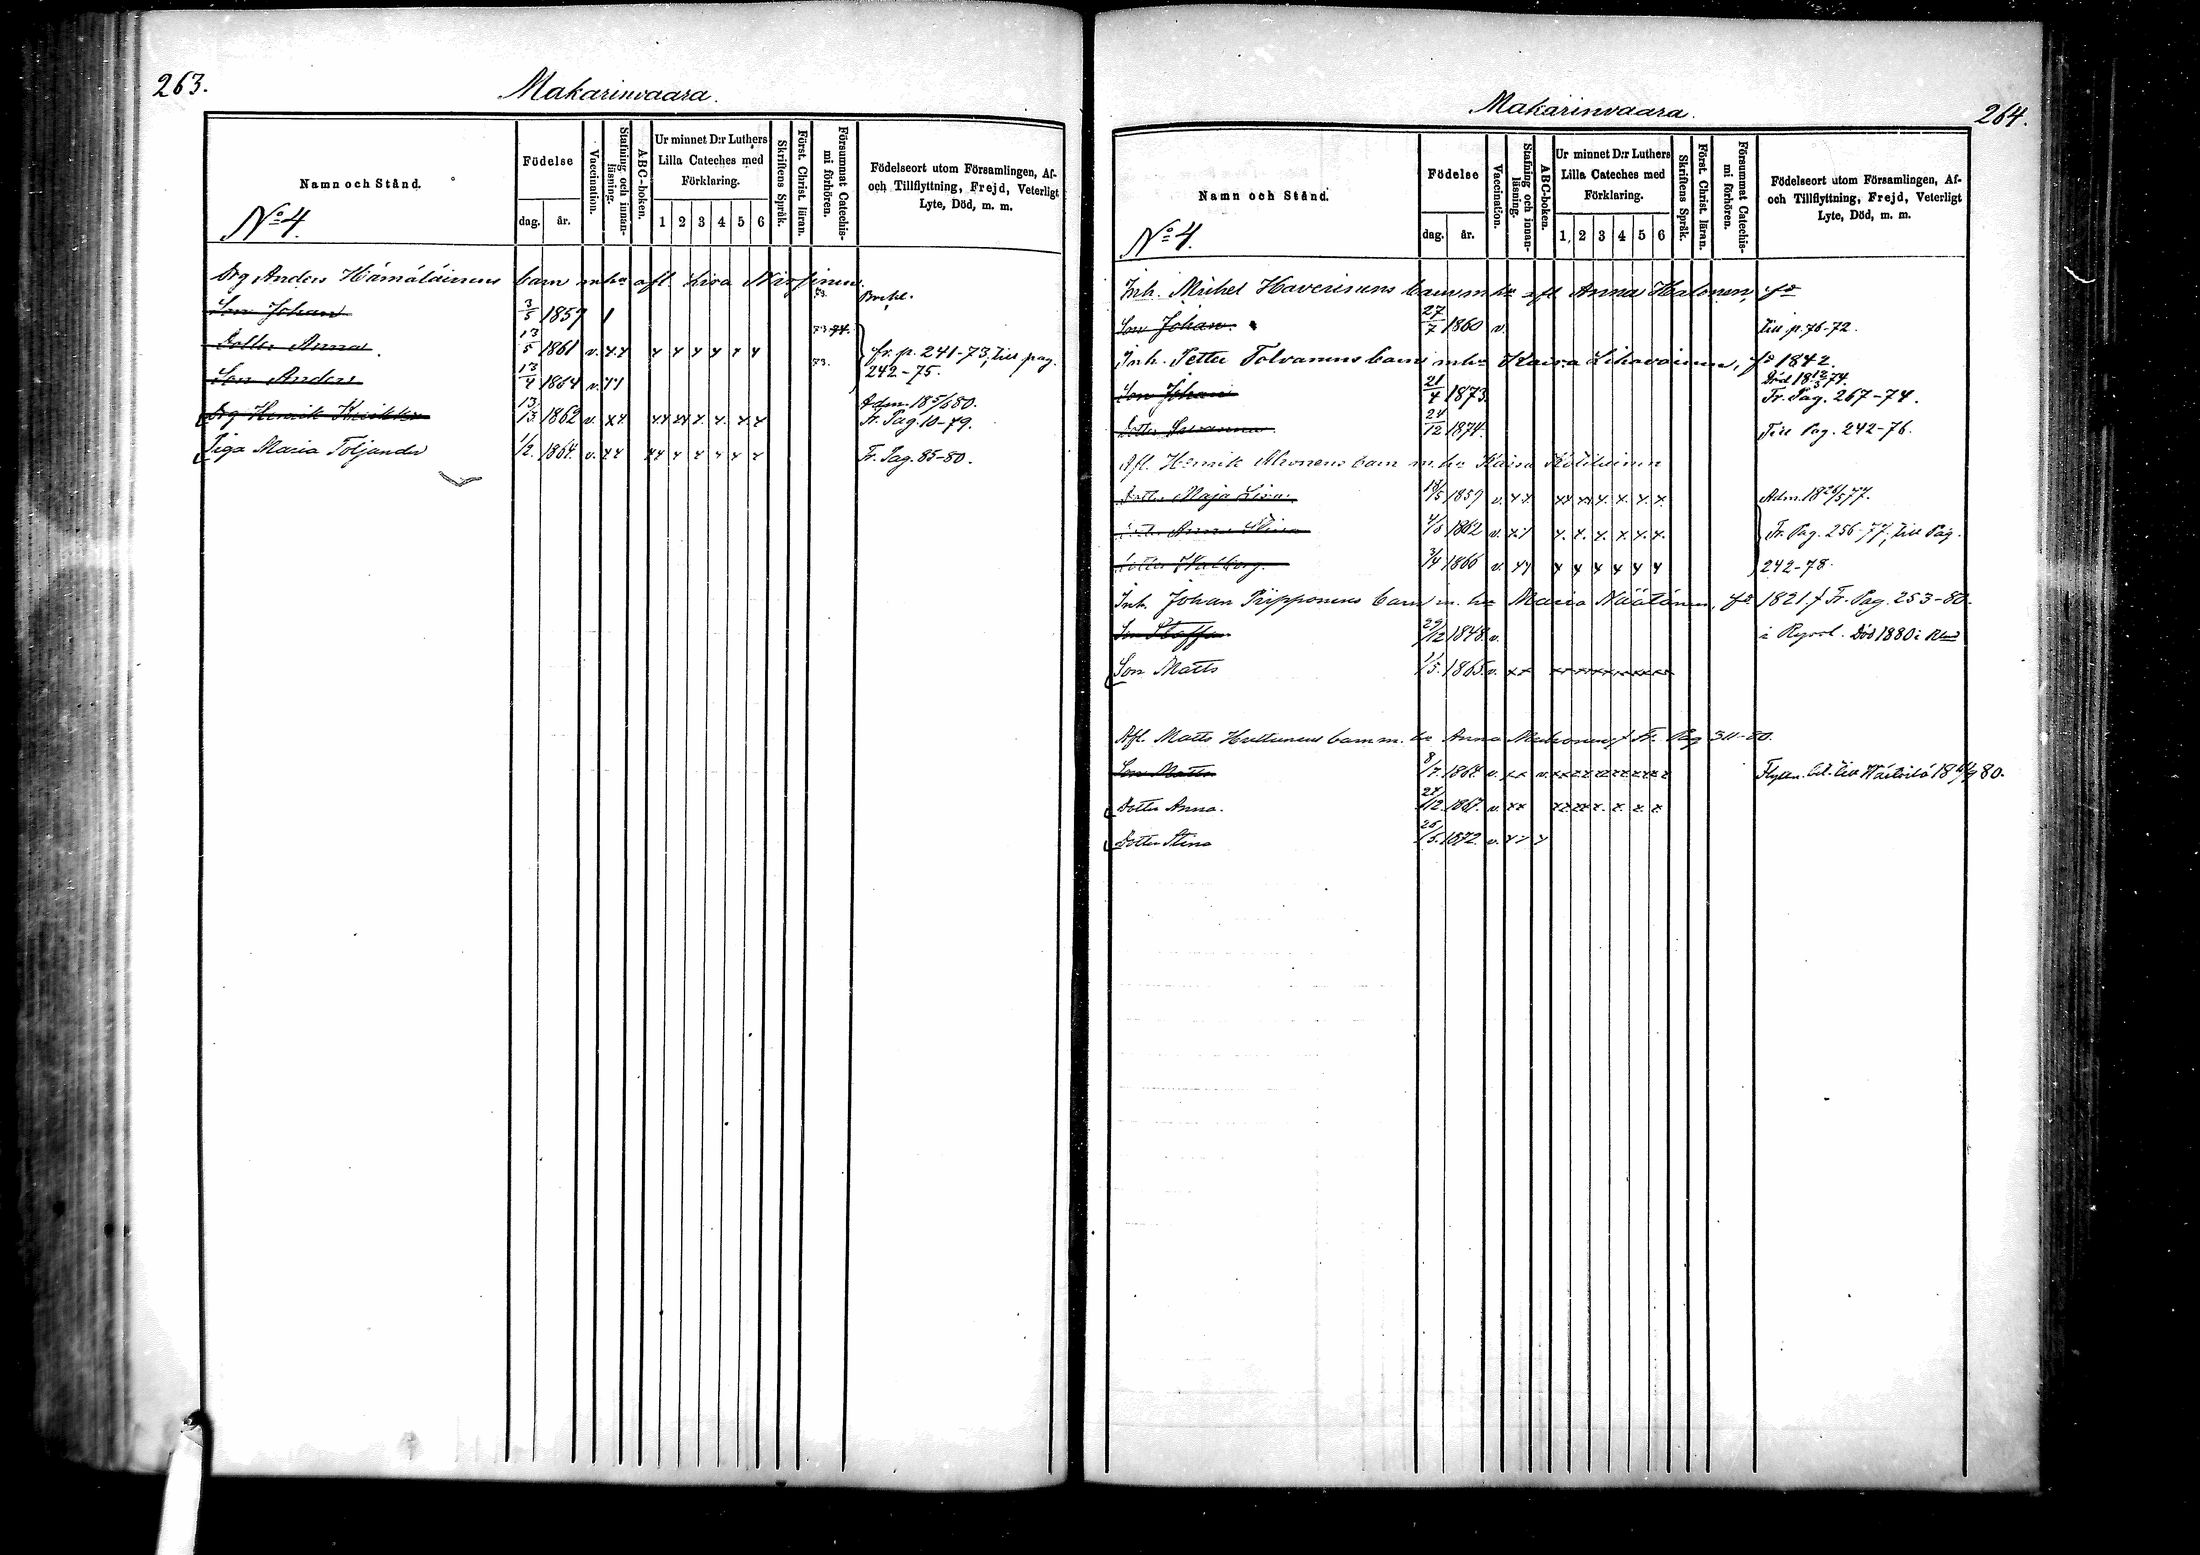 263.
Makarinvaara.
Namn och Stånd.
Födelse
dag.
år.
Vaccination.
Stafning och innanläsning.
ABC-boken.
Ur minnet D:r Luthers Lilla Cateches med Förklaring.
1 2 3 4 5 6
Skriftens Språk.
Först. Christ. läran.
Försummat Catechismi förhören.
Födelseort utom Församlingen, Af- och Tillflyttning, Frejd, Veterligt Lyte, Död, m. m.
No 4.
Drg Anders Hämäläinens barn m. hu afl Lisa
Son Johan 3/5 1857 1
Dotter Anna 13/5 1861 v. xx x x x x x x 73 74. fr. p. 241-73, till pag.
Son Anders 13/4 1864 v. xx 73. 242-75.
Adm. 18 5/6 80.
Drg Henrik 1862 v. xx xx xx x. x. x.x Fr. Pag. 10-79.
Piga Maria Toljander 1/2. 1864. v. xx xx x x x x x Fr. Pag. 85-80.
264.
Makarinvaara.
Namn och Stånd.
Födelse
dag.
år.
Vaccination.
Stafning och innanläsning.
ABC-boken.
Ur minnet D:r Luthers Lilla Cateches med Förklaring.
1, 2 3 4 5 6
Skriftens Språk.
Först. Christ. läran.
Försummat Catechismi förhören.
Födelseort utom Församlingen, Af- och Tillflyttning, Frejd, Veterligt Lyte, Död, m. m.
No 4.
Inh. Michel Haverinens barn m hu afl Anna Halonen, fö
Son Johan. 27/7 1860 v. till p. 76-72.
Inh. Petter Tolvanens barn m hu Kaisa, fö 1842.
Död 18 12/3 74.
Son Johan 21/4 1873. Fr. Pag. 267-74.
Dotter Susanna 24/12 1874. Till Pag. 242-76.
Afl. Henrik barn m. hu Kaisa
Dotter Maja Lisa 1859 v. xx xx xx x. x. x. x. Adm. 18 77.
Anna Stina 1862 v. xx x. x. x. x. x. x. Fr. Pag. 256-77, till Pag.
Dotter Walborg. 3/4 1866 v. xx x x x x x x 242-78.
Inh. Johan Pipponens barn m. hu Maria Näätänen, fö 1821, Fr. Pag. 253-80.
Son Staffan 29/12 1848. v. i Död 1880 i
Son Matts 1/5. 1865. v. xx
Afl. Matts Huttunens barn m. hu Anna Fr. Pag 311-80.
Son Matts 8/7. 1864. v. xx v. 18 80.
Dotter Anna. 1867. v. xx
Dotter Stina 1872. v. xx x